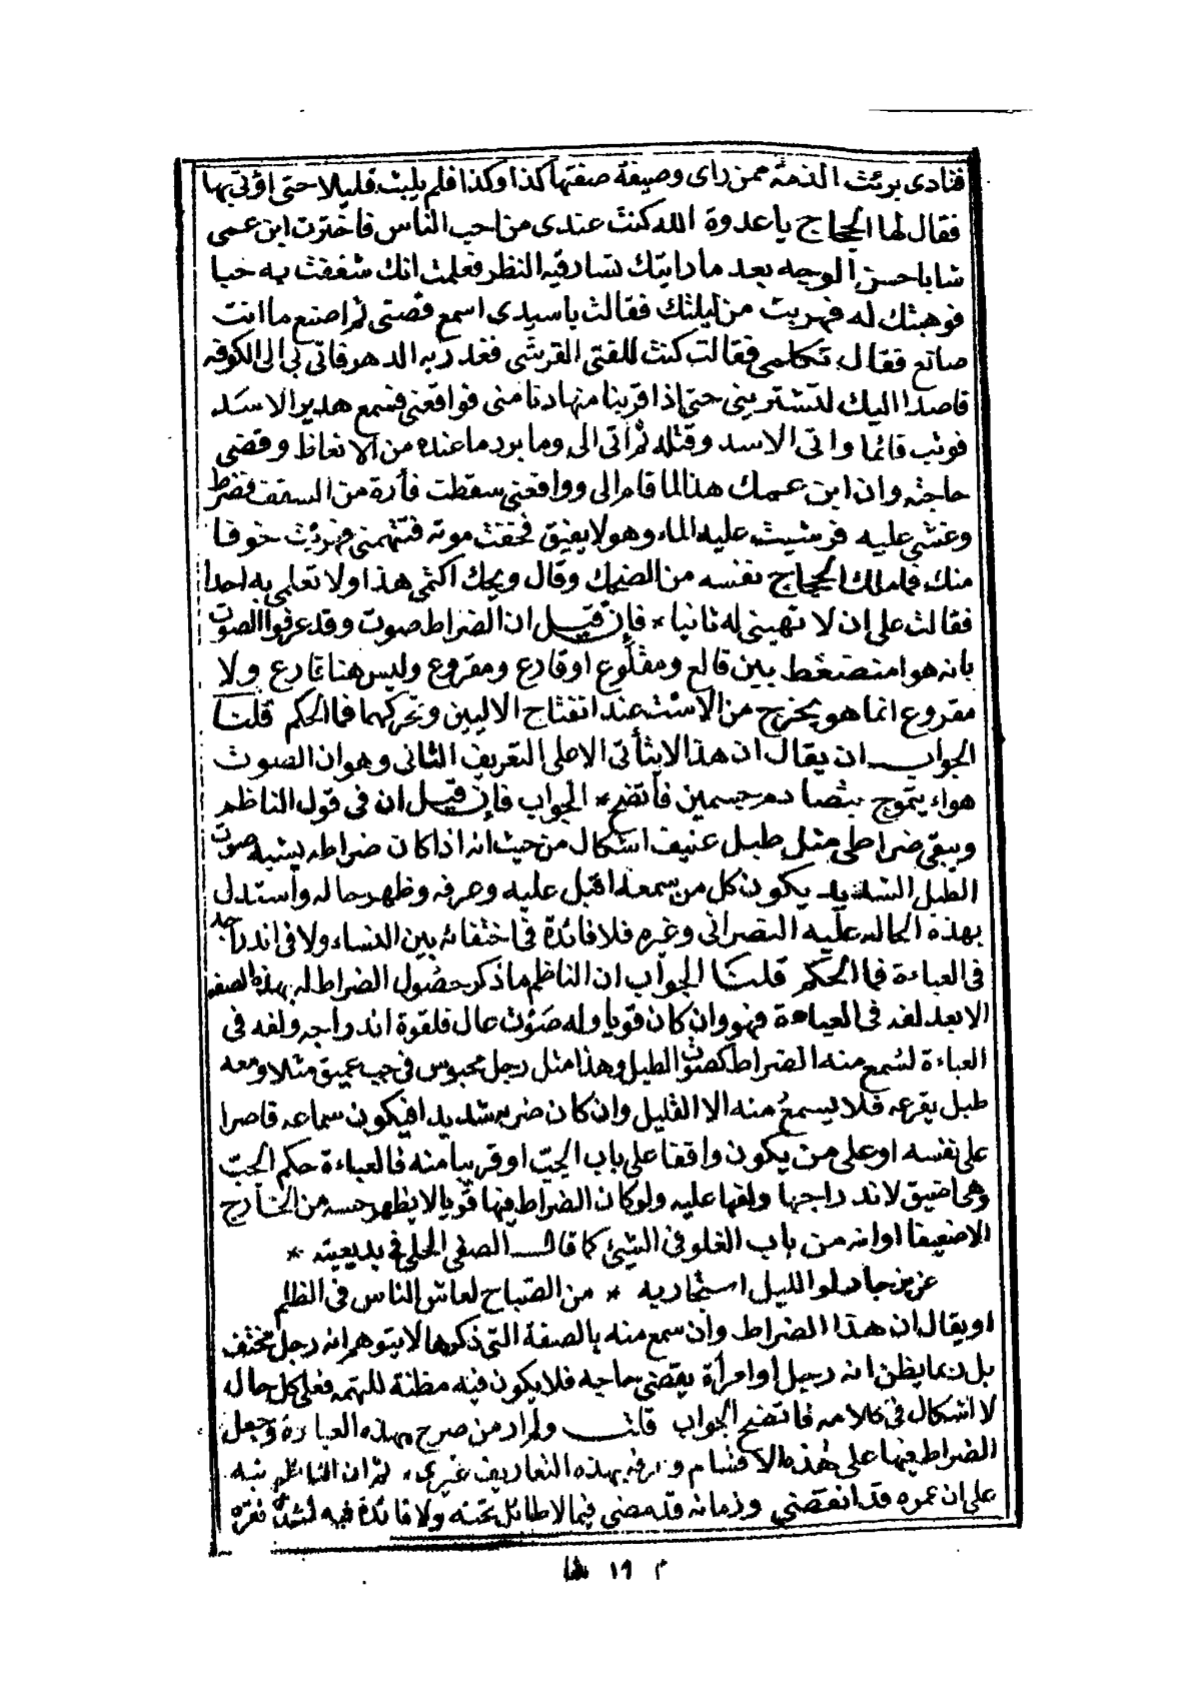 فنادى برئت الذمة ممن راى وصيفة صفتها كذا وكذا فلم يلبث قليلا حتى اؤتى بها
فقال لها الحجاج يا عدوة الله كنت عندى من احب الناس فاخترت ابن عمى
شابا حسن الوجه بعد ما رايتك تسارقيه النظر فعلمت انك شغفت به حبا
فوهبتك له فهربت من ليلتك فقالت يا سيدى اسمع قصتى ثم اصنع ما انت
صانع فقال تكلمى فقالت كنت للفتى القرشى فغدر به الدهر فاتى بى الى الكوفه
قاصدا اليك لتشترينى حتى اذا قربنا منها دنا منى فواقعنى فسمع هدير الاسد
فوثب قائما واتى الاسد وقتله ثم اتى الى وما برد ما عنده من الانعاظ وقضى
حاجته وان ابن عمك هذا لما قام الى وواقعنى سقطت فأرة من السقف فضرط
وغشى عليه فرشيت عليه الماء وهو لا يفيق فخفت موته فتتهمنى فهربت خوفا
منك فما ملك الحجاج نفسه من الضحك وقال ويحك اكتمى هذا ولا تعلمى به احدا
فقالت على ان لا تهبنى له ثانيا * فإن قيل ان الضراط صوت وقد عرفوا الصوت
بانه هوا منضغط بين قالع ومقلوع او قارع ومقروع وليس هنا قارع ولا
مقروع انما هو يخرج من الاست عند انفتاح الاليين وتحركهما فما الحكم قلنا
الجواب ان يقال ان هذا لا يتأتى الا على التعريف الثانى وهو ان الصوت
هواء يتموج بتصادم جسمين فأتضح * الجواب فإن قيل ان فى قول الناظم
ويبقى ضراطى مثل طبل عنيف اشكال من حيث انه اذا كان ضراطه يشبه صوت
الطبل الشديد يكون كل من سمعه اقبل عليه وعرفه وظهر حاله واستدل
بهذة الحاله عليه النصرانى وغيره فلا فائدة فى اختفائه بين النساء ولا فى اندراجه
فى العباءة فما الحكم قلنا الجواب ان الناظم ما ذكر حصول الضراط له بهذه الصفه
الا بعد لفه فى العباءة فهو وان كان قويا وله صوت عال فلقوة اندراجه ولفه فى
العباءة لسمع منه الضراط كصوت الطبل وهذا مثل رجل محبوس فى جب عميق مثلا ومعه
طبل يقرعه فلا يسمع منه الا القليل وان كان ضربه شديدا فيكون سماعه قاصرا
على نفسه او على من يكون واقفا على باب الجب او قريبا منه فالعباءة حكم الجب
وهى اضيق لاندراجها ولفها عليه ولو كان الضراط فيها قويا لا يظهر حسه من الخارج
الا ضعيفا او انه من باب الغلو فى الشئ كما قال الصفى الحلى فى بديعيته *
عزيز جار لو الليل استجار به * من الصباح لعاش الناس فى الظلم
او يقال ان هذا الضراط وان سمع منه بالصفة التى ذكرها لا يتوهم انه رجل مختف
بل ربما يظن انه رجل او امرأة يقضى حاجه فلا يكون فيه مظنة للتهمه فعلى كل حال
لا اشكال فى كلامه فاتضح الجواب قلت ولم ار من صرح بهذه العبارة وجعل
الضراط فيها على هذه الاقسام وعرفه بهذه التعاريف غيرى ثم ان الناظم نبه
على ان عمره قد انقضى وزمانه قد مضى فيما لا طائل تحته ولا فائدة فيه لشدة فقره
م ١٩ شا